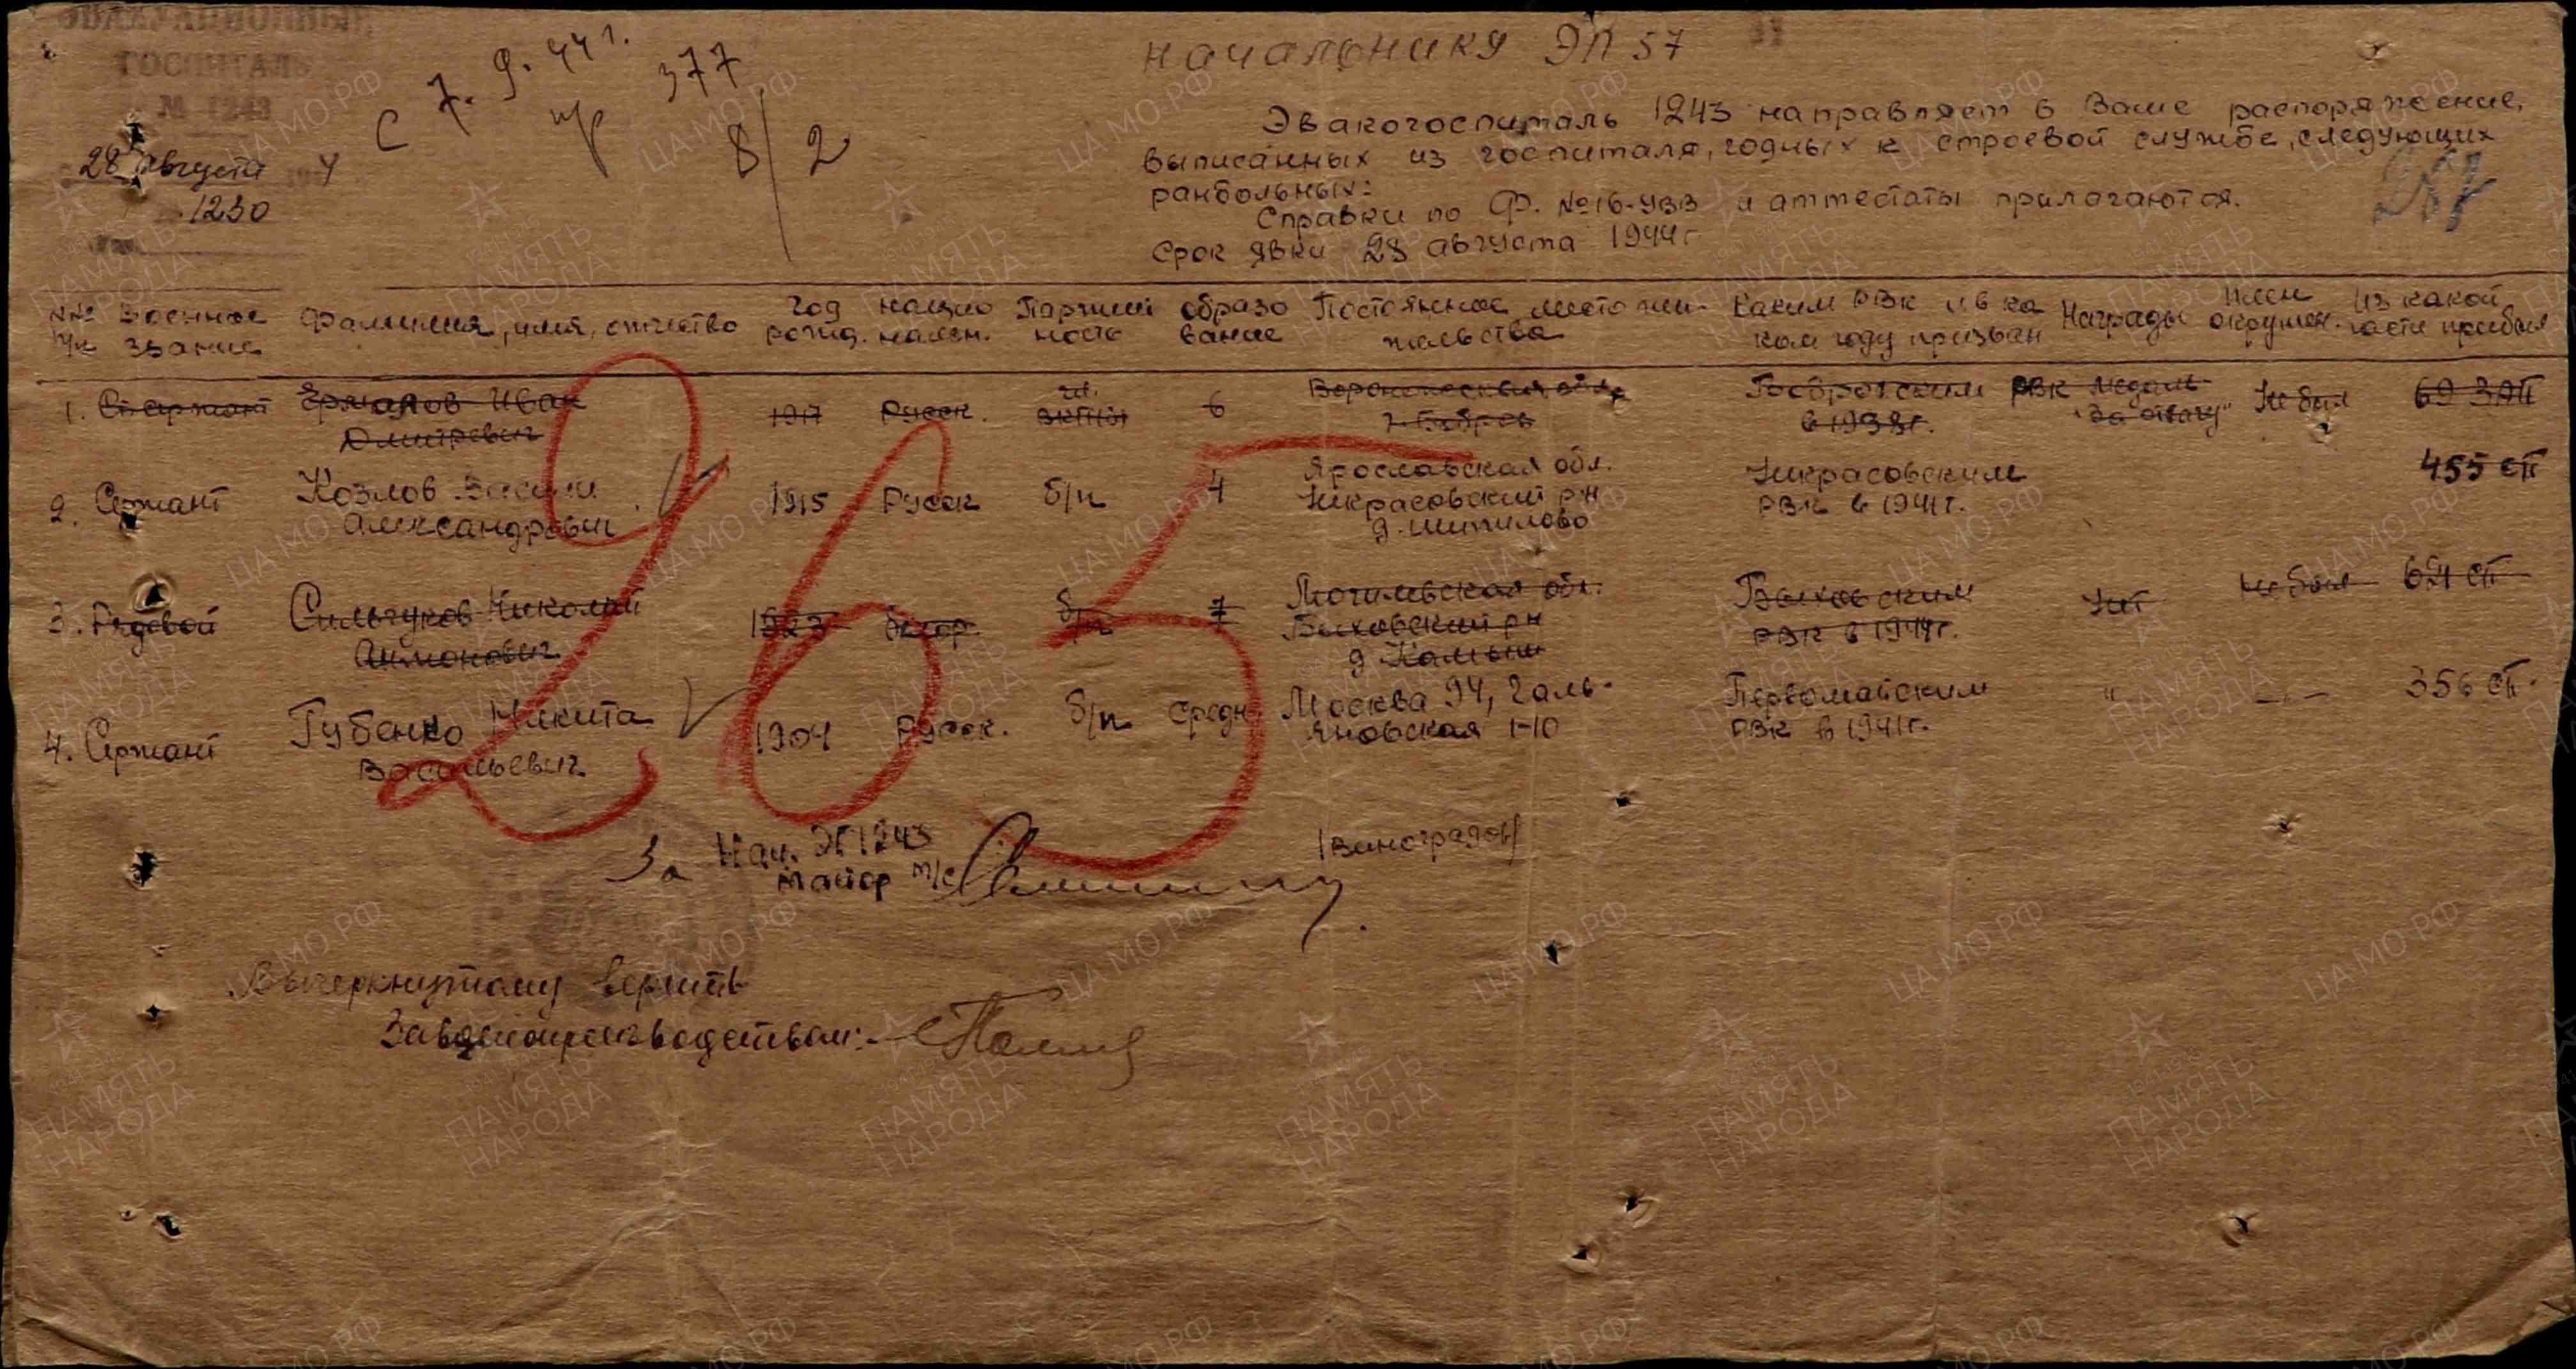 ЭВАКУАЦИОННЫЙ
ГОСПИТАЛЬ
№ 1243
28 августа 194 4
1230
с 7. 9. 44 г.
пр 377
8/2
Начальнику ЭП 57
Эвакогоспиталь 1243 направляет в Ваше распоряжение,
выписанных из госпиталя, годных к строевой службе, следующих
ранбольных:
Справки по Ф. №16-УВВ и аттестаты прилагаются.
Срок явки 28 августа 1944 г
№№ п/п Военное звание Фамилия, имя, отчество Год рожд. нацио нальн. Партий ность образо вание Постоянное место жи- тельства Каким РВК и в ка ком году призван Награды Плен окружен. Из какой части прибыл
1. Ст сержант Ермаков Иван Дмитревич 1917 Русск. чл. ВКП(б) 6 Воронежская обл. г. Бобров Бобровским РВК в 1938г. Медаль "За отвагу" Не был 69 ЗАП
2. Сержант Козлов Василий Александрович 1915 Русск б/п 4 Ярославская обл. Некрасовский р-н д. Шипилово Некрасовским РВК в 1941г. 455 сп
3. Рядовой Сильчуков Николай Антонович 1923 белор. б/п 7 Могилевская обл. Быховский рн д. Быховским РВК в 1944г. Нет Не был
4. Сержант Губенко Никита Васильевич 1904 Русск. б/п средн. Москва 94, Галь- яновская 1-10 Первомайским РВК в 1941г. " —"— 356 сп.
265
За Нач. ЭГ 1243
майор м/с /Виноградов/
Вычеркнутому верить
Завделопроизводством: